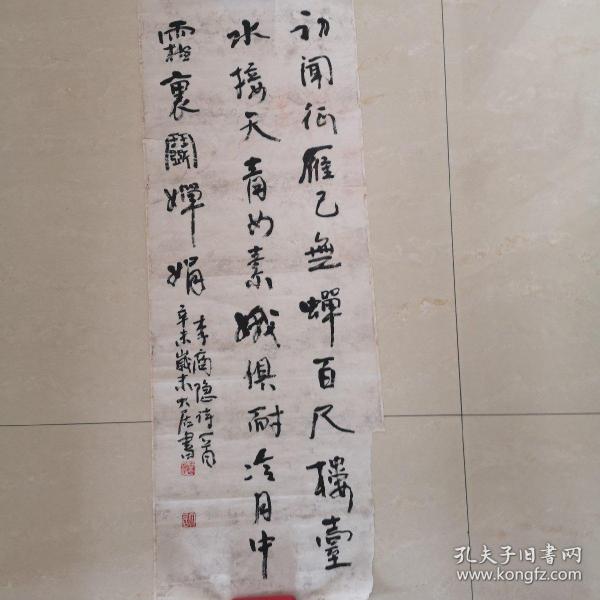 初闻征雁已無蟬百尺樓臺
水接天青女素娥俱耐冷月中
霜裏鬭嬋娟
李商隐诗一首
辛未歲末大居書
孔夫子旧书网
www.kongfz.com